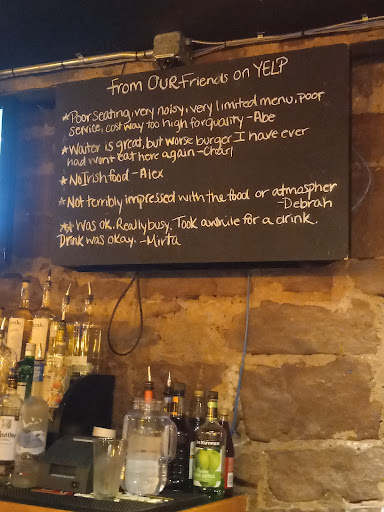 From OUR Friends on YELP
*Poor seating, very noisy, very limited menu, poor
service, cost way too high for quality - Abe
*Waiter is great, but worse burger I have ever
had wont eat here again - Chari
*No Irish food - Alex
*Not terribly impressed with the food or atmaspher
- Debrah
* Was ok. Really busy. Took awhile for a drink.
Drink was okay. - Mirta